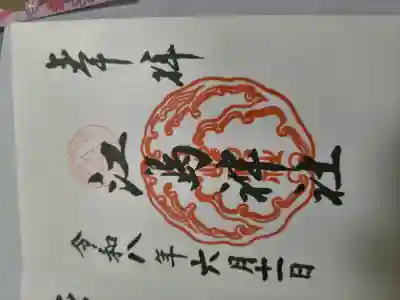 奉拝
江島神社
令和八年六月十一日